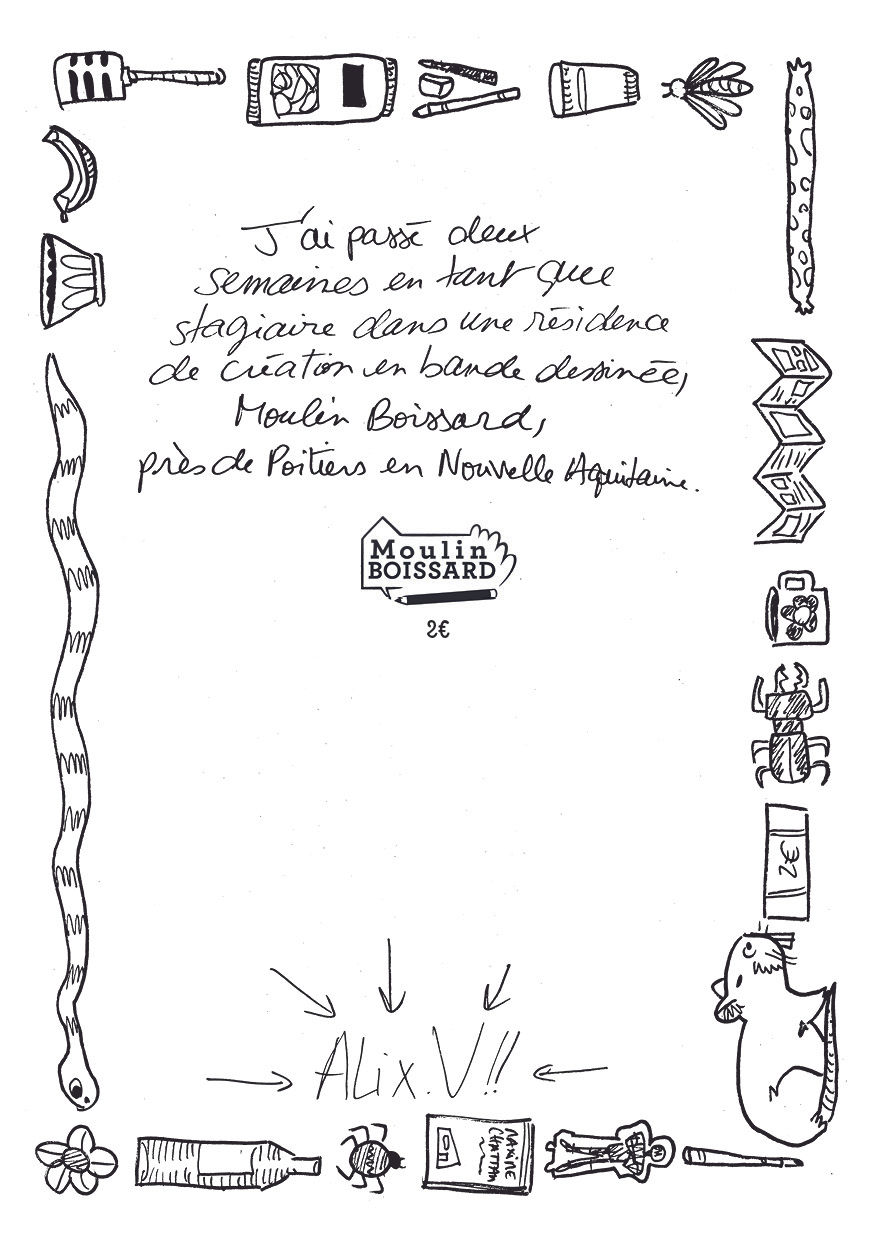 J'ai passé deux
semaines en tant que
stagiaire dans une résidence
de création en bande dessinée,
Moulin Boissard,
près de Poitiers en Nouvelle Aquitaine.
Moulin
BOISSARD
2€
32
ALix.V!!
MAXIME
CHATTAM